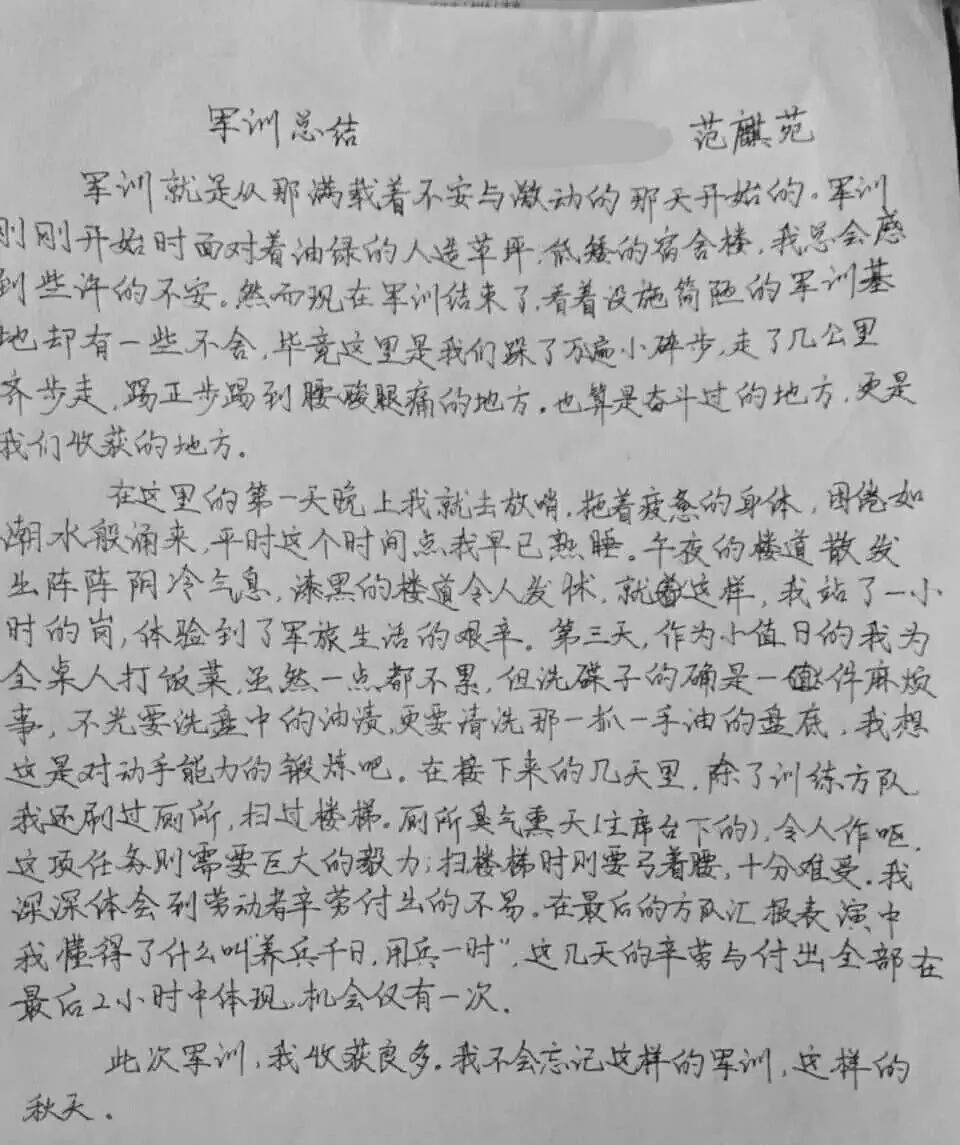 军训总结 范麒苑
军训就是从那满载着不安与激动的那天开始的。军训
刚刚开始时面对着油绿的人造草坪,低矮的宿舍楼,我总会感
到些许的不安。然而现在军训结束了,看着设施简陋的军训基
地却有一些不舍,毕竟这里是我们跺了万遍小碎步,走了几公里
齐步走,踢正步踢到腰酸腿痛的地方。也算是奋斗过的地方,更是
我们收获的地方。
在这里的第一天晚上我就去放哨,拖着疲惫的身体,困倦如
潮水般涌来,平时这个时间点我早已熟睡。午夜的楼道散发
出阵阵阴冷气息,漆黑的楼道令人发怵,就着这样,我站了一小
时的岗,体验到了军旅生活的艰辛。第三天,作为小值日的我为
全桌人打饭菜,虽然一点都不累,但洗碟子的确是一件麻烦
事,不光要洗盘中的油渍,更要清洗那一抓一手油的盘底,我想
这是对动手能力的锻炼吧。在接下来的几天里,除了训练方队
我还刷过厕所,扫过楼梯。厕所臭气熏天(主席台下的),令人作呕,
这项任务则需要巨大的毅力;扫楼梯时则要弓着腰,十分难受。我
深深体会到劳动者辛劳付出的不易。在最后的方队汇报表演中
我懂得了什么叫“养兵千日,用兵一时”,这几天的辛劳与付出全部在
最后2小时中体现,机会仅有一次。
此次军训,我收获良多。我不会忘记这样的军训,这样的
秋天。